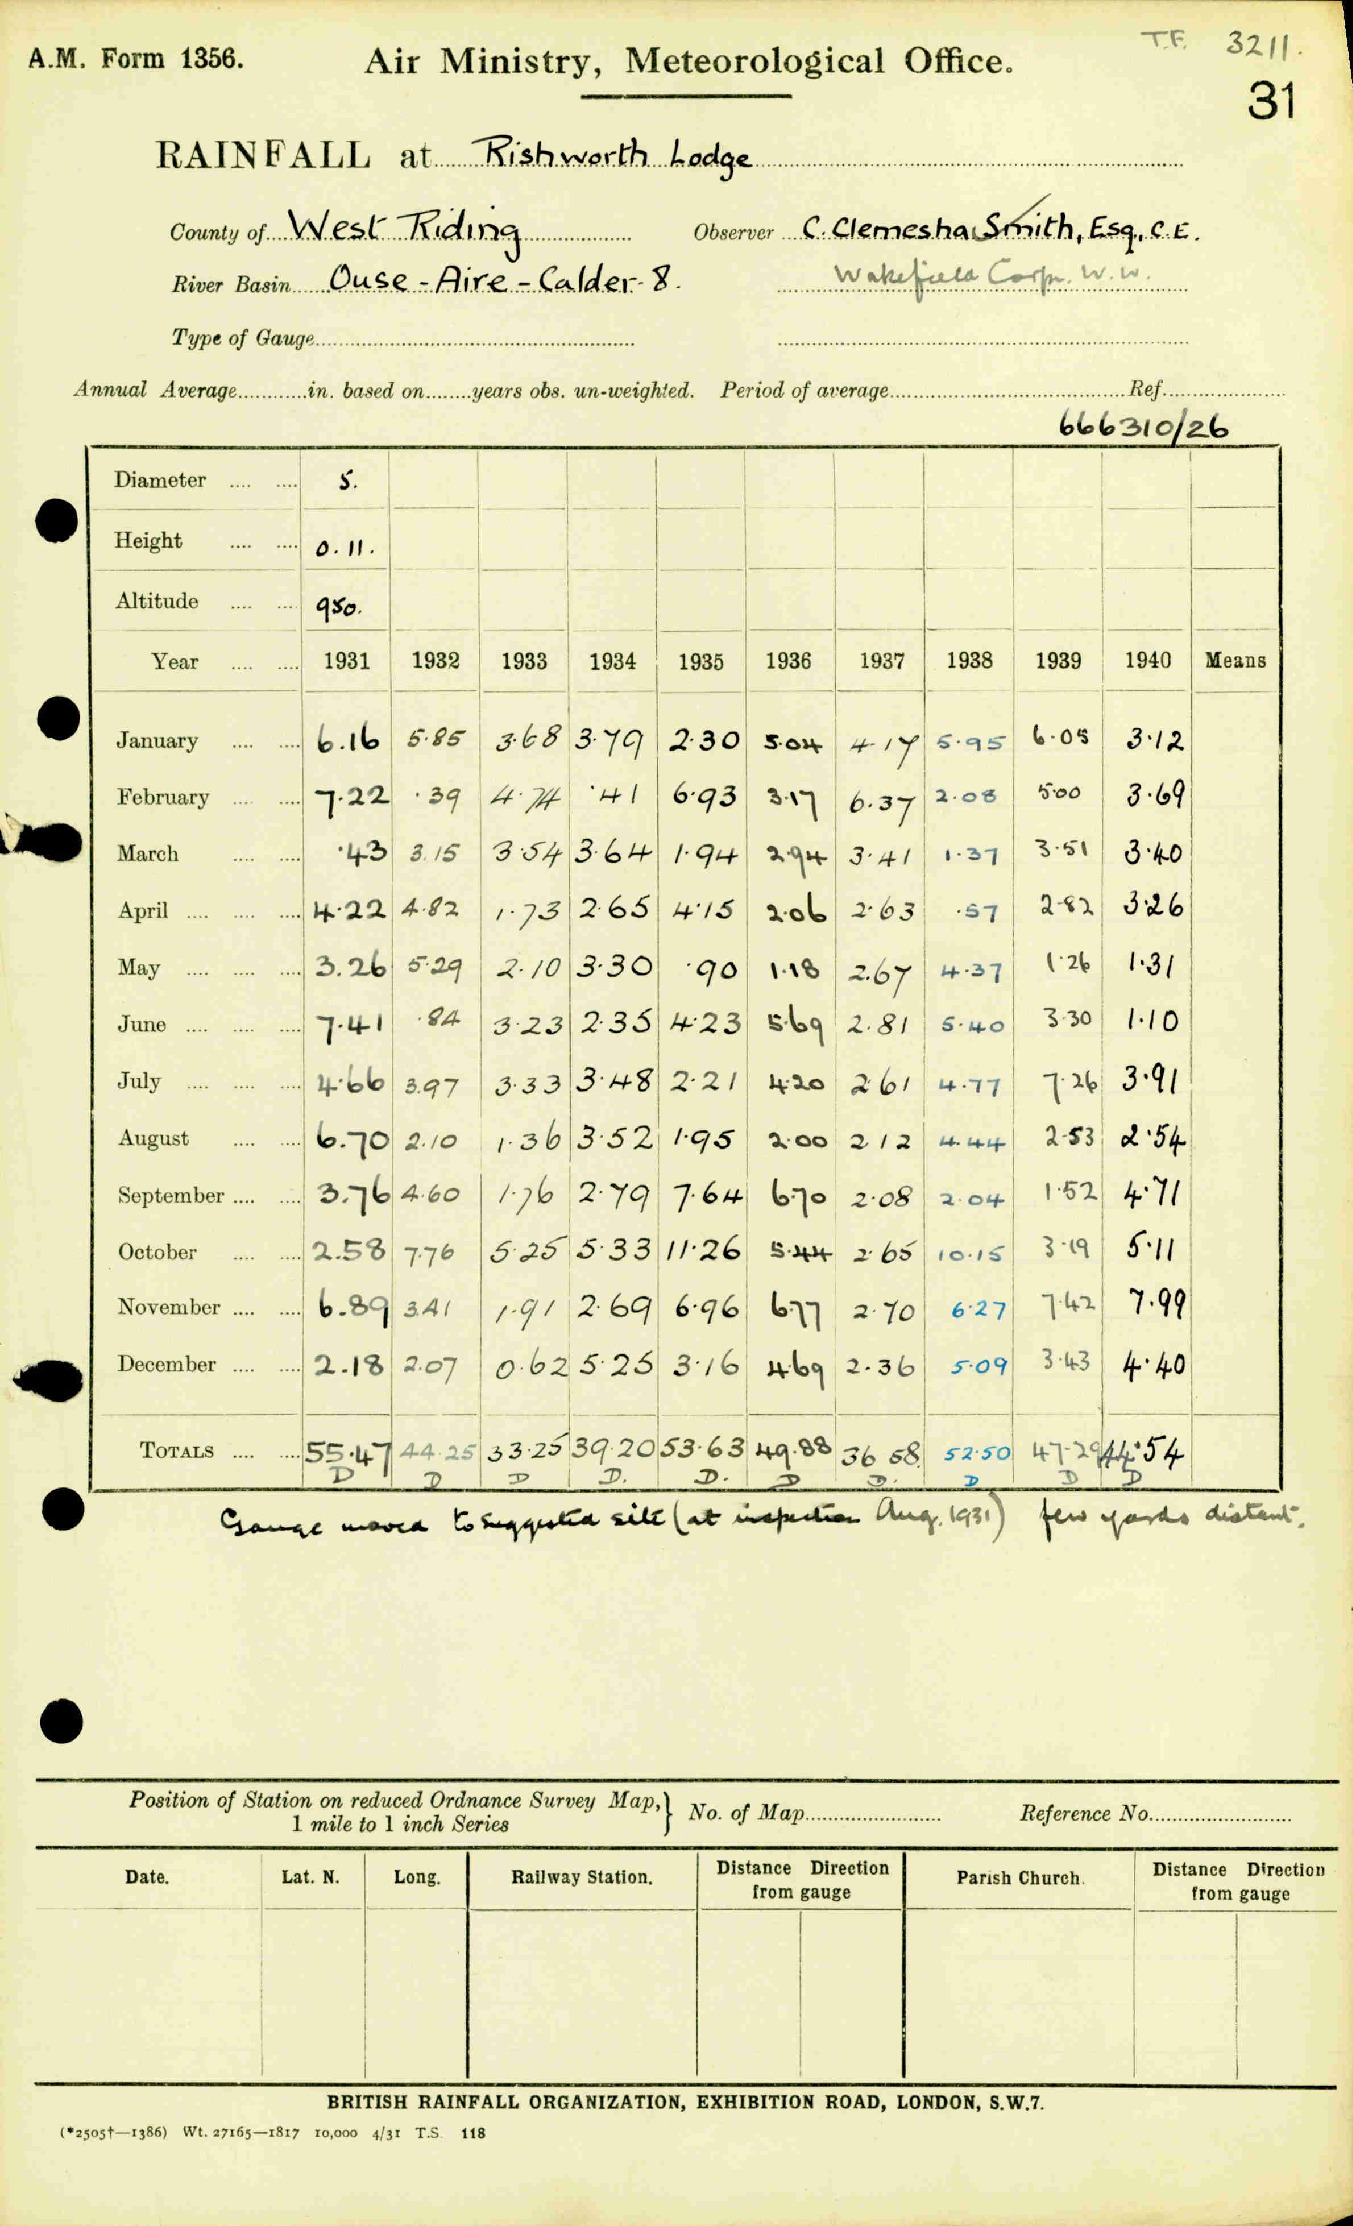 T.F. 3211.
A.M. Form 1356. Air Ministry, Meteorological Office.
31
RAINFALL at Rishworth Lodge
County of West Riding Observer C. Clemesha Smith, Esq., C.E.
River Basin Ouse - Aire - Calder - 8. Wakefield Corp. W.W.
Type of Gauge
Annual Average in. based on years obs. un-weighted. Period of average Ref.
666310/26
Diameter 5.
Height 0.11.
Altitude 950.
Year 1931 1932 1933 1934 1935 1936 1937 1938 1939 1940 Means
January 6.16 5.85 3.68 3.79 2.30 5.04 4.17 5.95 6.05 3.12
February 7.22 .39 4.74 .41 6.93 3.17 6.37 2.08 5.00 3.69
March .43 3.15 3.54 3.64 1.94 2.94 3.41 1.37 3.51 3.40
April 4.22 4.82 1.73 2.65 4.15 2.06 2.63 .57 2.82 3.26
May 3.26 5.29 2.10 3.30 .90 1.18 2.67 4.37 1.26 1.31
June 7.41 .84 3.23 2.35 4.23 5.69 2.81 5.40 3.30 1.10
July 4.66 3.97 3.33 3.48 2.21 4.20 2.61 4.77 7.26 3.91
August 6.70 2.10 1.36 3.52 1.95 2.00 2.12 4.44 2.53 2.54
September 3.76 4.60 1.76 2.79 7.64 6.70 2.08 2.04 1.52 4.71
October 2.58 7.76 5.25 5.33 11.26 5.44 2.65 10.15 3.19 5.11
November 6.89 3.41 1.91 2.69 6.96 6.77 2.70 6.27 7.42 7.99
December 2.18 2.07 0.62 5.25 3.16 4.69 2.36 5.09 3.43 4.40
TOTALS 55.47 44.25 33.25 39.20 53.63 49.88 36.58 52.50 47.29 44.54
D D D D. D. D D. D D D
Gauge moved to suggested site (at inspection Aug. 1931) few yards distant.
Position of Station on reduced Ordnance Survey Map, } No. of Map Reference No.
1 mile to 1 inch Series
Date. Lat. N. Long. Railway Station. Distance Direction from gauge Parish Church. Distance Direction from gauge
BRITISH RAINFALL ORGANIZATION, EXHIBITION ROAD, LONDON, S.W.7.
(*2505†—1386) Wt. 27165—1817 10,000 4/31 T.S. 118